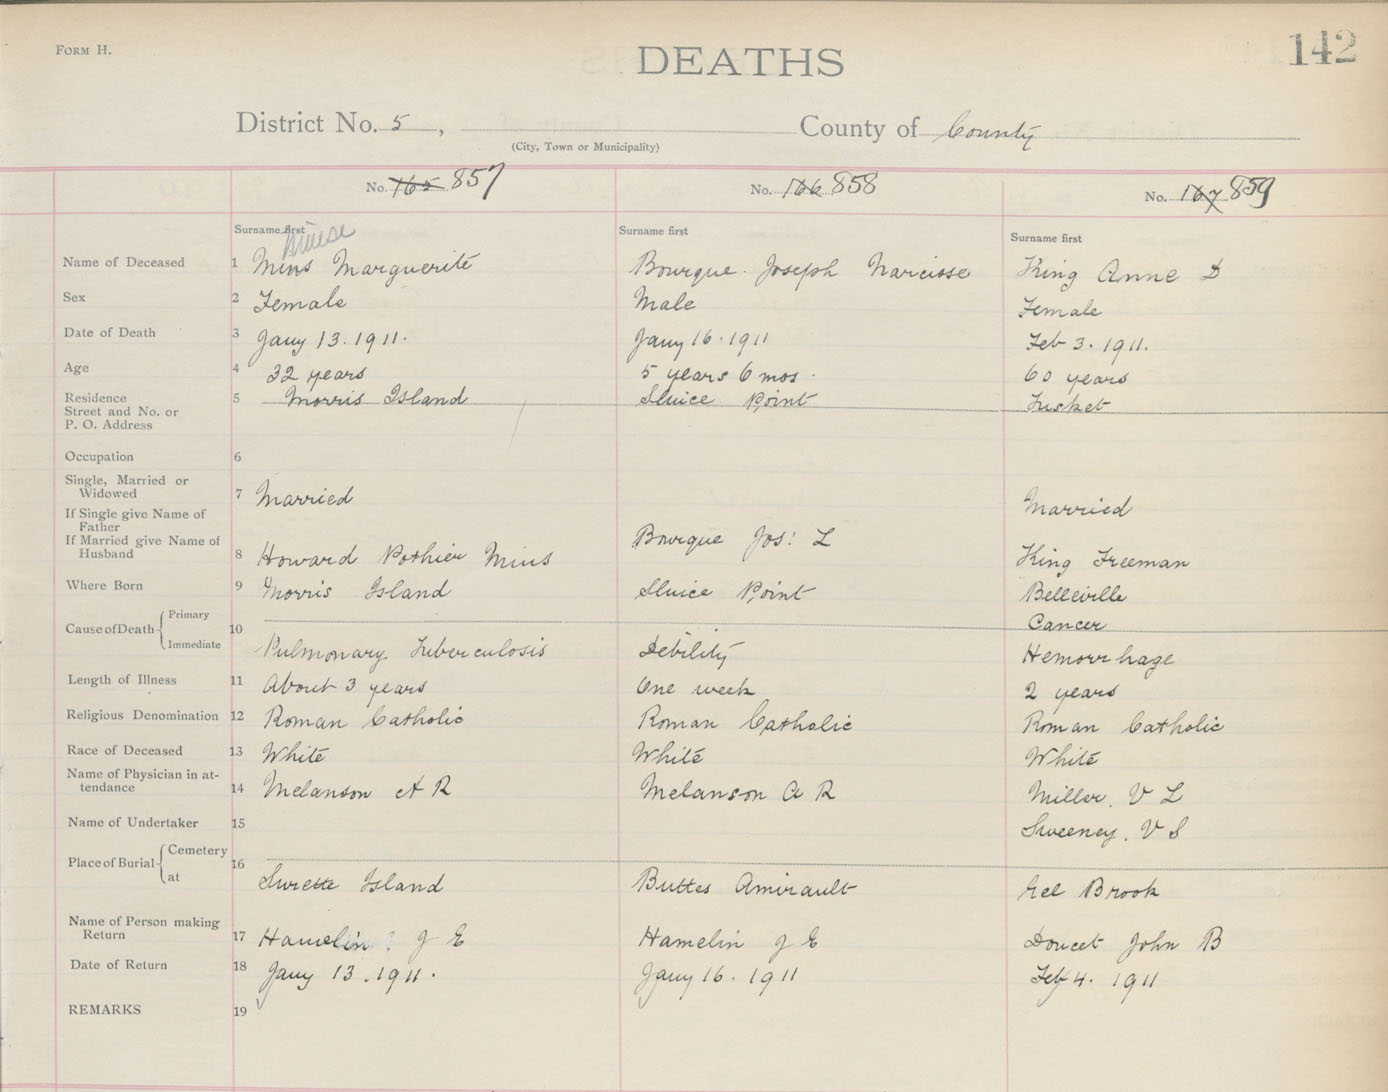 FORM H.
DEATHS
142
District No. 5, County of County
(City, Town or Municipality)
No. 165 857 No. 166 858 No. 167 859
Surname first Surname first Surname first
Muise
Name of Deceased 1 Mius Marguerite Bourque. Joseph Narcisse King Anne D
Sex 2 Female Male Female
Date of Death 3 Jany 13. 1911. Jany 16. 1911 Feb 3. 1911.
Age 4 32 years 5 years 6 mos. 60 years
Residence 5 Morris Island Sluice Point Tusket
Street and No. or
P. O. Address
Occupation 6
Single, Married or
Widowed 7 Married Married
If Single give Name of
Father Bourque Jos: L
If Married give Name of
Husband 8 Howard Pothier Mius King Freeman
Where Born 9 Morris Island Sluice Point Belleville
Cause of Death 10 Primary Cancer
Immediate Pulmonary Tuberculosis Debility Hemorrhage
Length of Illness 11 About 3 years One week 2 years
Religious Denomination 12 Roman Catholic Roman Catholic Roman Catholic
Race of Deceased 13 White White White
Name of Physician in at-
tendance 14 Melanson A R Melanson A R Miller. V L
Name of Undertaker 15 Sweeney. V S
Place of Burial 16 Cemetery
at Surette Island Buttes Amirault Eel Brook
Name of Person making
Return 17 Hamelin J E Hamelin J E Doucet John B
Date of Return 18 Jany 13. 1911. Jany 16. 1911 Feb 4. 1911
REMARKS 19